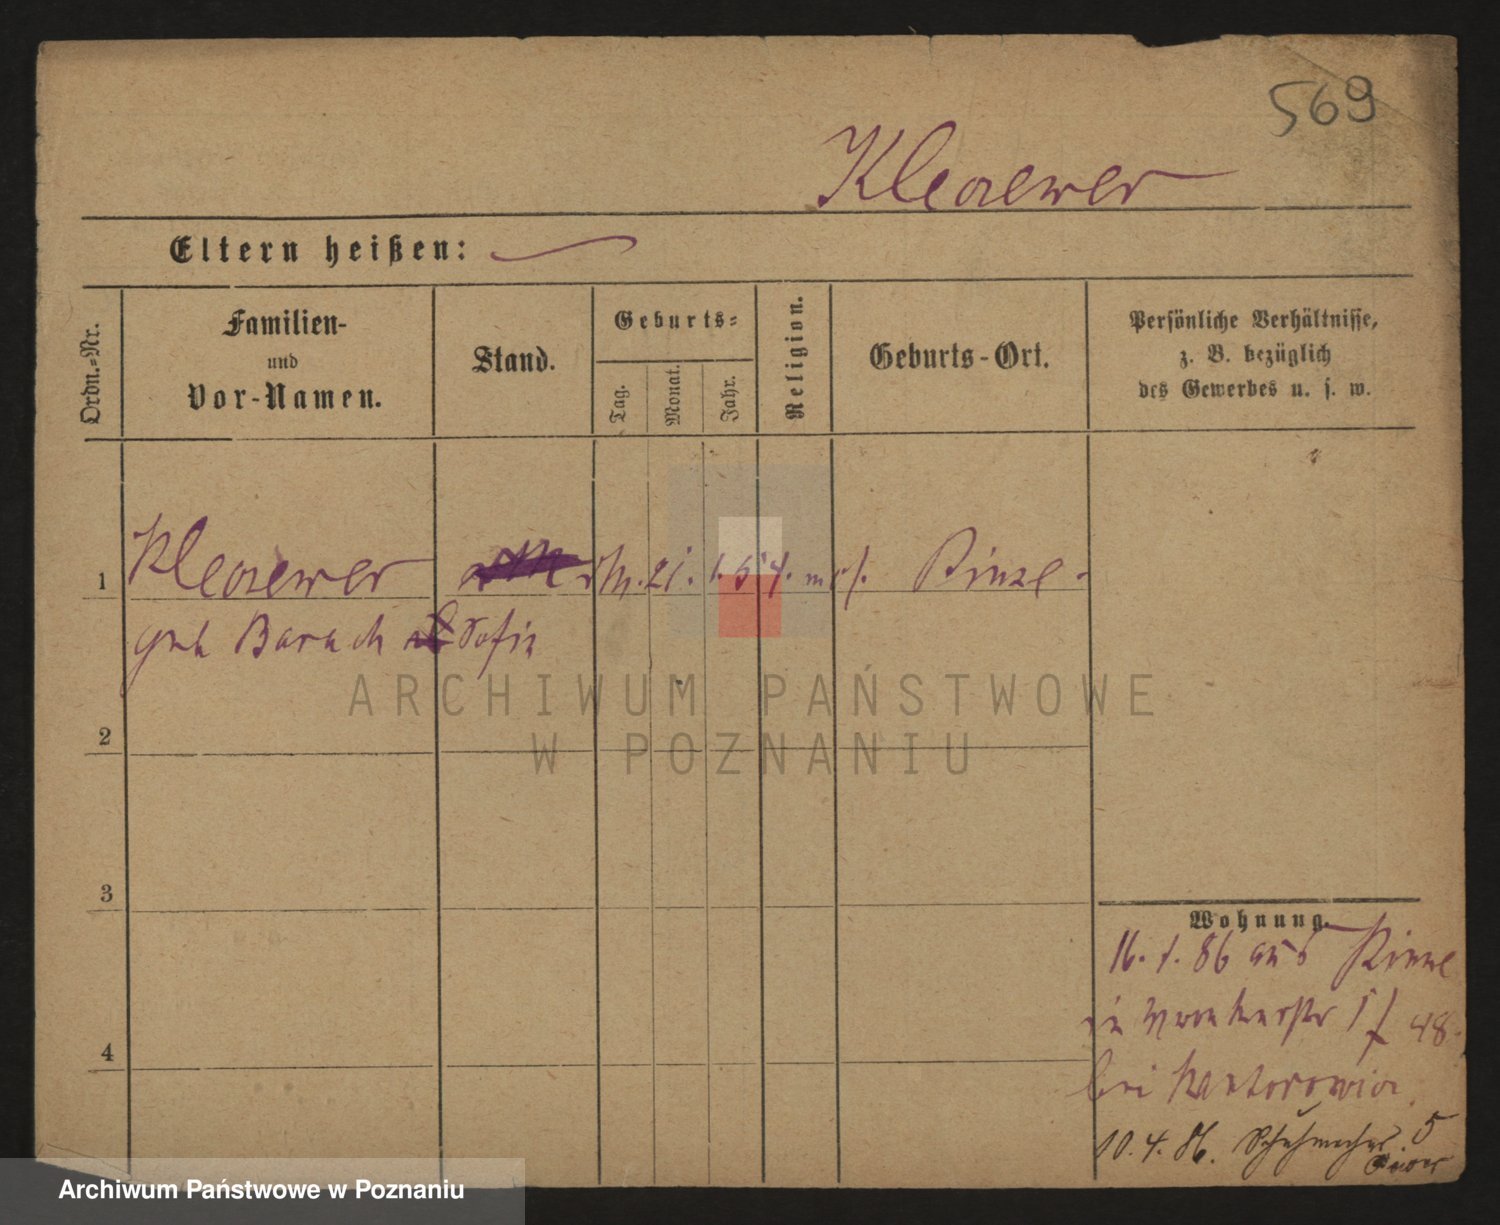 569
Kleczewer
Eltern heißen:
Ordn.-Nr.
Familien-
und
Vor-Namen.
Stand.
Geburts-
Tag.
Monat.
Jahr.
Religion.
Geburts-Ort.
Persönliche Verhältnisse,
z. B. bezüglich
des Gewerbes u. s. w.
1 Kleczewer 21. Pinne
geb Baruch Sofie
ARCHIWUM PAŃSTWOWE
W POZNANIU
2
3
Wohnung.
16. 1. 86 aus Pinne
in 48.
4
bei Kantorowicz
10. 4. 86. Schuhmacher 5
Archiwum Państwowe w Poznaniu